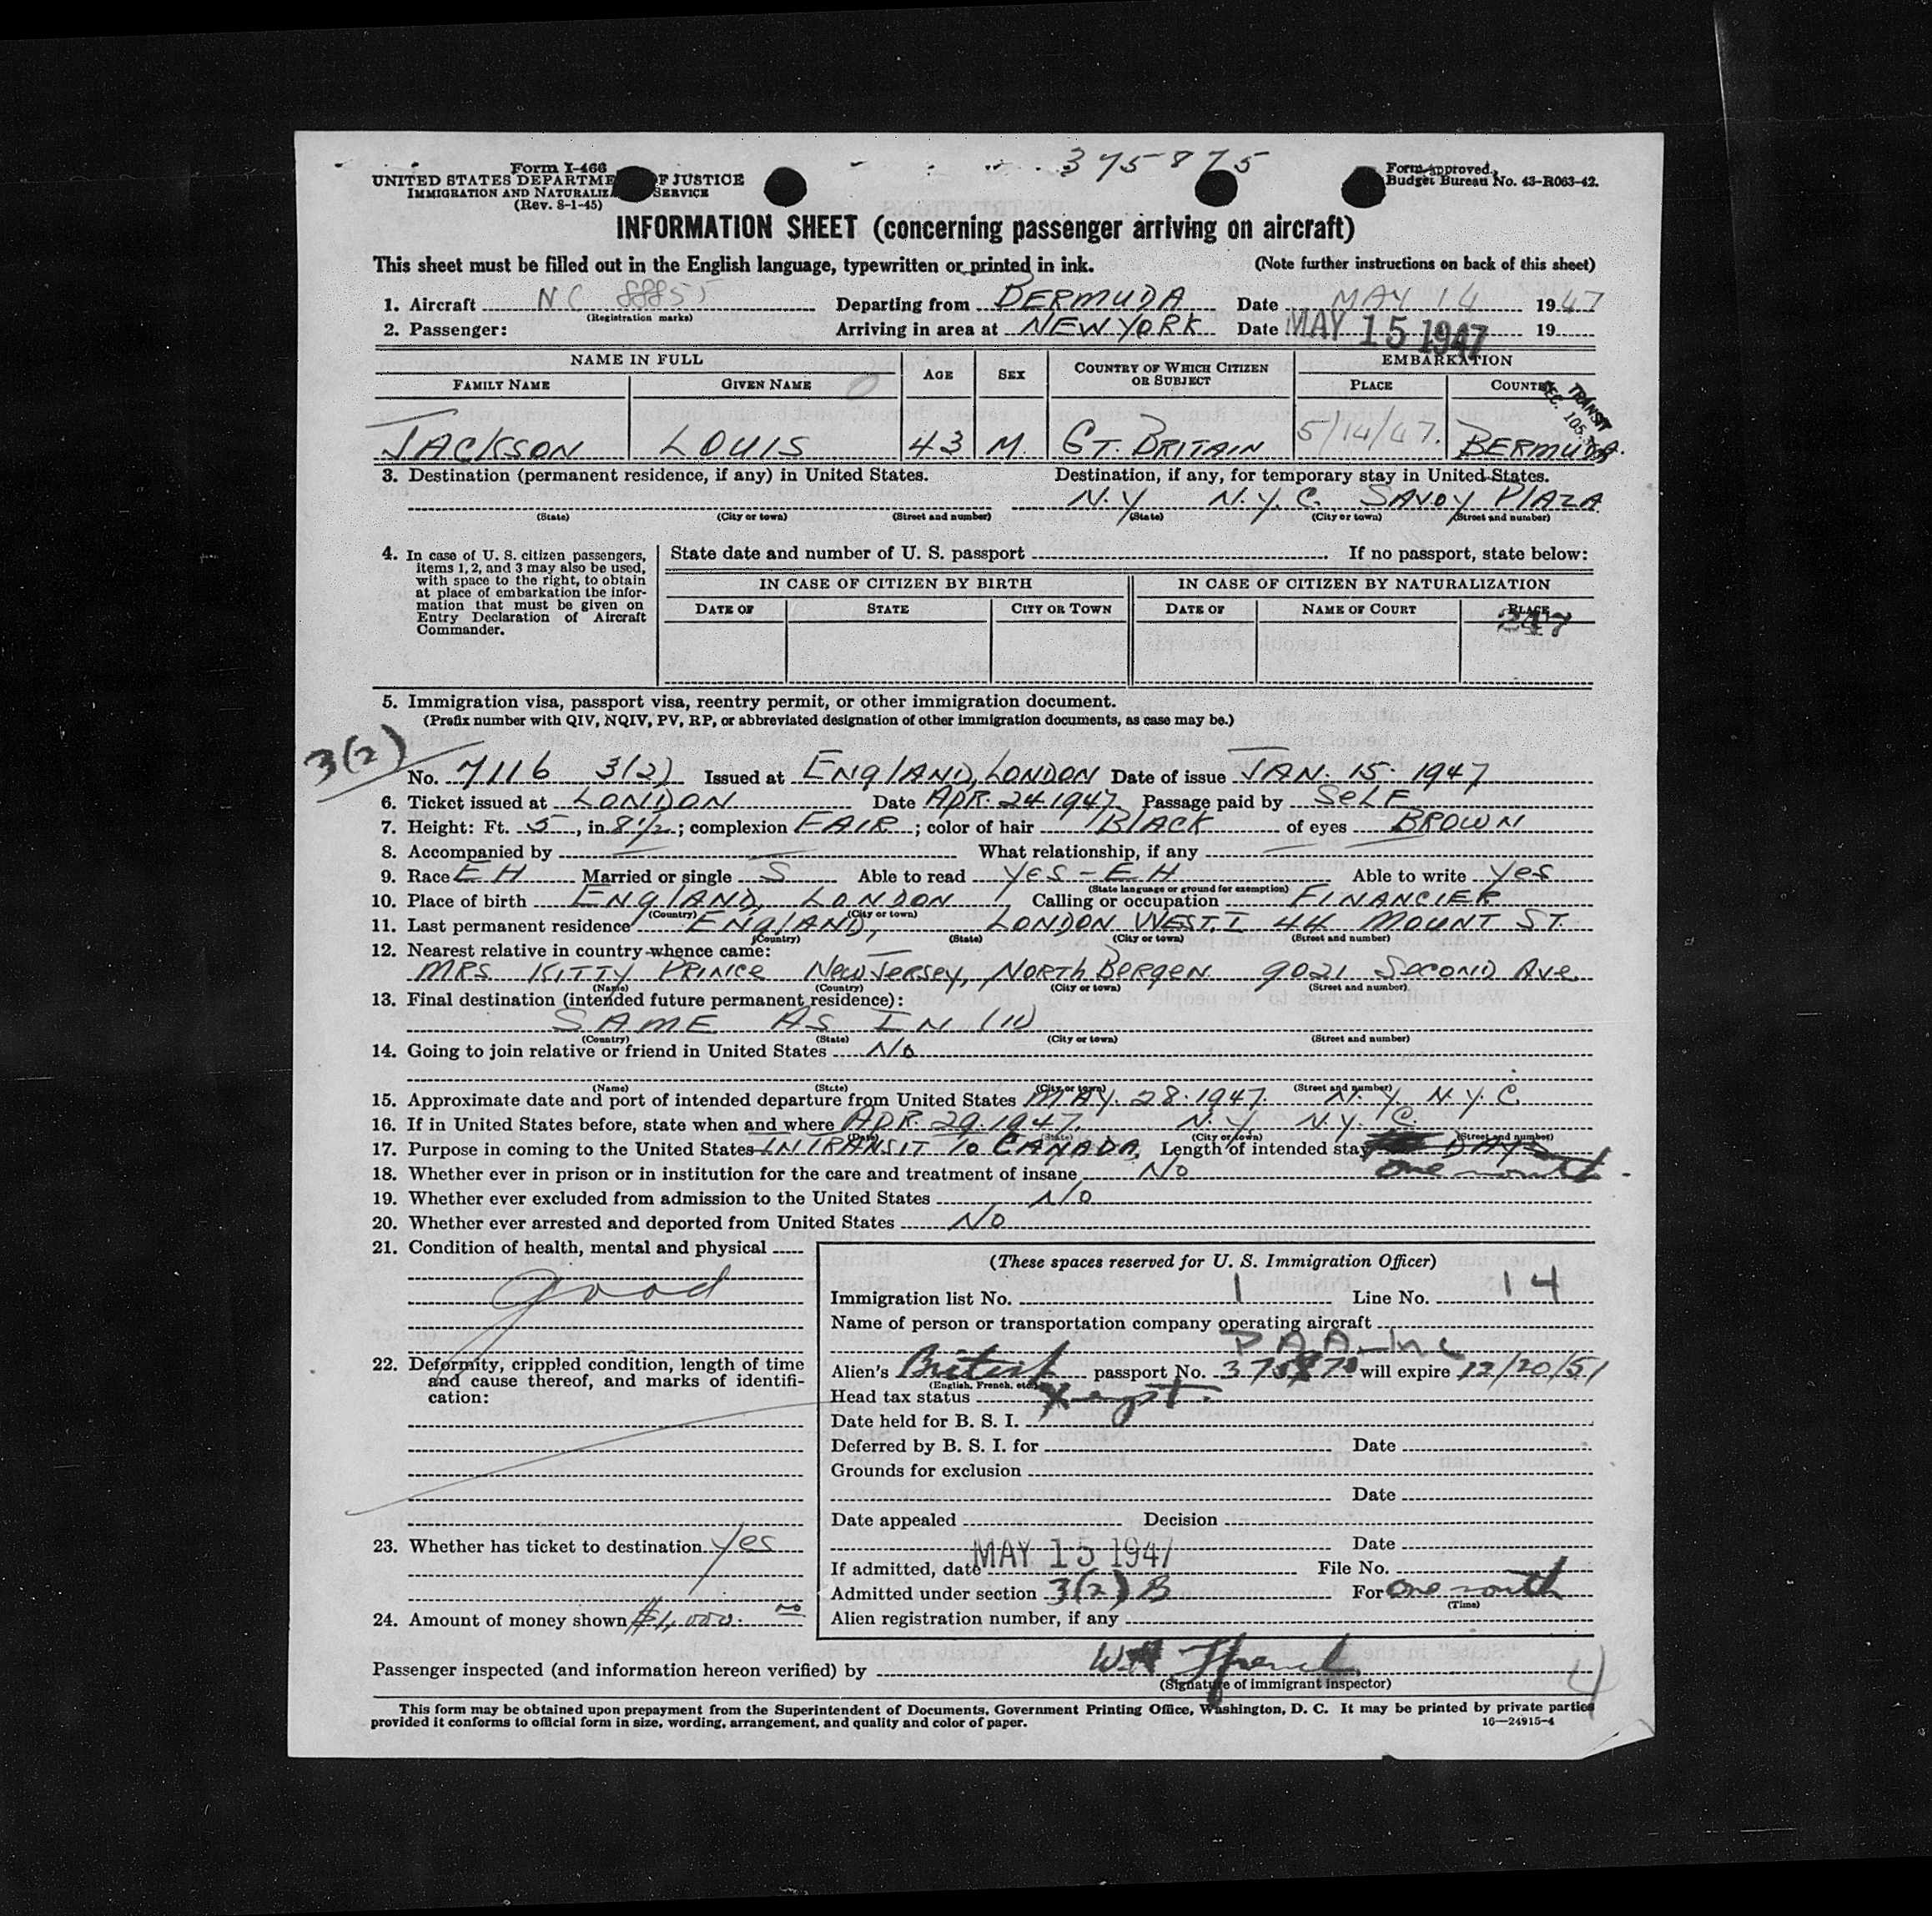 375875
Form I-466
UNITED STATES DEPARTME F JUSTICE
IMMIGRATION AND NATURALIZ SERVICE
(Rev. 8-1-45)
Form approved.
Budget Bureau No. 43-R063-42.
INFORMATION SHEET (concerning passenger arriving on aircraft)
This sheet must be filled out in the English language, typewritten or printed in ink. (Note further instructions on back of this sheet)
1. Aircraft NC 88855 Departing from BERMUDA Date MAY 14 1947
(Registration marks)
2. Passenger: Arriving in area at NEW YORK Date MAY 15 1947 19
NAME IN FULL AGE SEX COUNTRY OF WHICH CITIZEN OR SUBJECT EMBARKATION
FAMILY NAME GIVEN NAME PLACE COUNTRY
TRANSIT
SEC. 105.
JACKSON LOUIS 43 M. GT. BRITAIN 5/14/47. BERMUDA.
3. Destination (permanent residence, if any) in United States. Destination, if any, for temporary stay in United States.
N.Y N.Y.C. SAVOY PLAZA
(State) (City or town) (Street and number) (State) (City or town) (Street and number)
4. In case of U. S. citizen passengers, items 1, 2, and 3 may also be used, with space to the right, to obtain at place of embarkation the information that must be given on Entry Declaration of Aircraft Commander.
State date and number of U. S. passport If no passport, state below:
IN CASE OF CITIZEN BY BIRTH IN CASE OF CITIZEN BY NATURALIZATION
DATE OF STATE CITY OR TOWN DATE OF NAME OF COURT PLACE
247
5. Immigration visa, passport visa, reentry permit, or other immigration document.
(Prefix number with QIV, NQIV, PV, RP, or abbreviated designation of other immigration documents, as case may be.)
3(2)
No. 7116 3(2) Issued at ENGLAND, LONDON Date of issue JAN. 15. 1947
6. Ticket issued at LONDON Date APR. 24 1947 Passage paid by SELF
7. Height: Ft. 5, in. 8 1/2; complexion FAIR; color of hair BLACK of eyes BROWN
8. Accompanied by — — What relationship, if any — —
9. Race EH Married or single S Able to read YES - EH Able to write YES
(State language or ground for exemption)
10. Place of birth ENGLAND, LONDON Calling or occupation FINANCIER
(Country) (City or town)
11. Last permanent residence ENGLAND, LONDON WEST. I 44 MOUNT ST.
(Country) (State) (City or town) (Street and number)
12. Nearest relative in country whence came:
MRS KITTY PRINCE NEW JERSEY, NORTH BERGEN 9021 SECOND AVE.
(Name) (Country) (City or town) (Street and number)
13. Final destination (intended future permanent residence):
SAME AS IN (11)
(Country) (State) (City or town) (Street and number)
14. Going to join relative or friend in United States No
(Name) (State) (City or town) (Street and number)
15. Approximate date and port of intended departure from United States MAY. 28. 1947. N.Y. N.Y.C
16. If in United States before, state when and where APR. 29. 1947. N.Y N.Y.C.
(Date) (State) (City or town) (Street and number)
17. Purpose in coming to the United States IN TRANSIT TO CANADA. Length of intended stay DAYS
one month
18. Whether ever in prison or in institution for the care and treatment of insane No
19. Whether ever excluded from admission to the United States No
20. Whether ever arrested and deported from United States No
21. Condition of health, mental and physical
good
22. Deformity, crippled condition, length of time and cause thereof, and marks of identification:
23. Whether has ticket to destination yes
24. Amount of money shown $1,000.00
(These spaces reserved for U. S. Immigration Officer)
Immigration list No. 1 Line No. 14
Name of person or transportation company operating aircraft
P.A.A. Inc
Alien's British passport No. 375875 will expire 12/20/51
(English, French, etc.)
Head tax status
Date held for B. S. I.
Deferred by B. S. I. for Date
Grounds for exclusion
Date
Date appealed Decision
Date
If admitted, date MAY 15 1947 File No.
Admitted under section 3(2) B For one month
(Time)
Alien registration number, if any
Passenger inspected (and information hereon verified) by
(Signature of immigrant inspector)
4
This form may be obtained upon prepayment from the Superintendent of Documents, Government Printing Office, Washington, D. C. It may be printed by private parties
provided it conforms to official form in size, wording, arrangement, and quality and color of paper. 16—24915-4